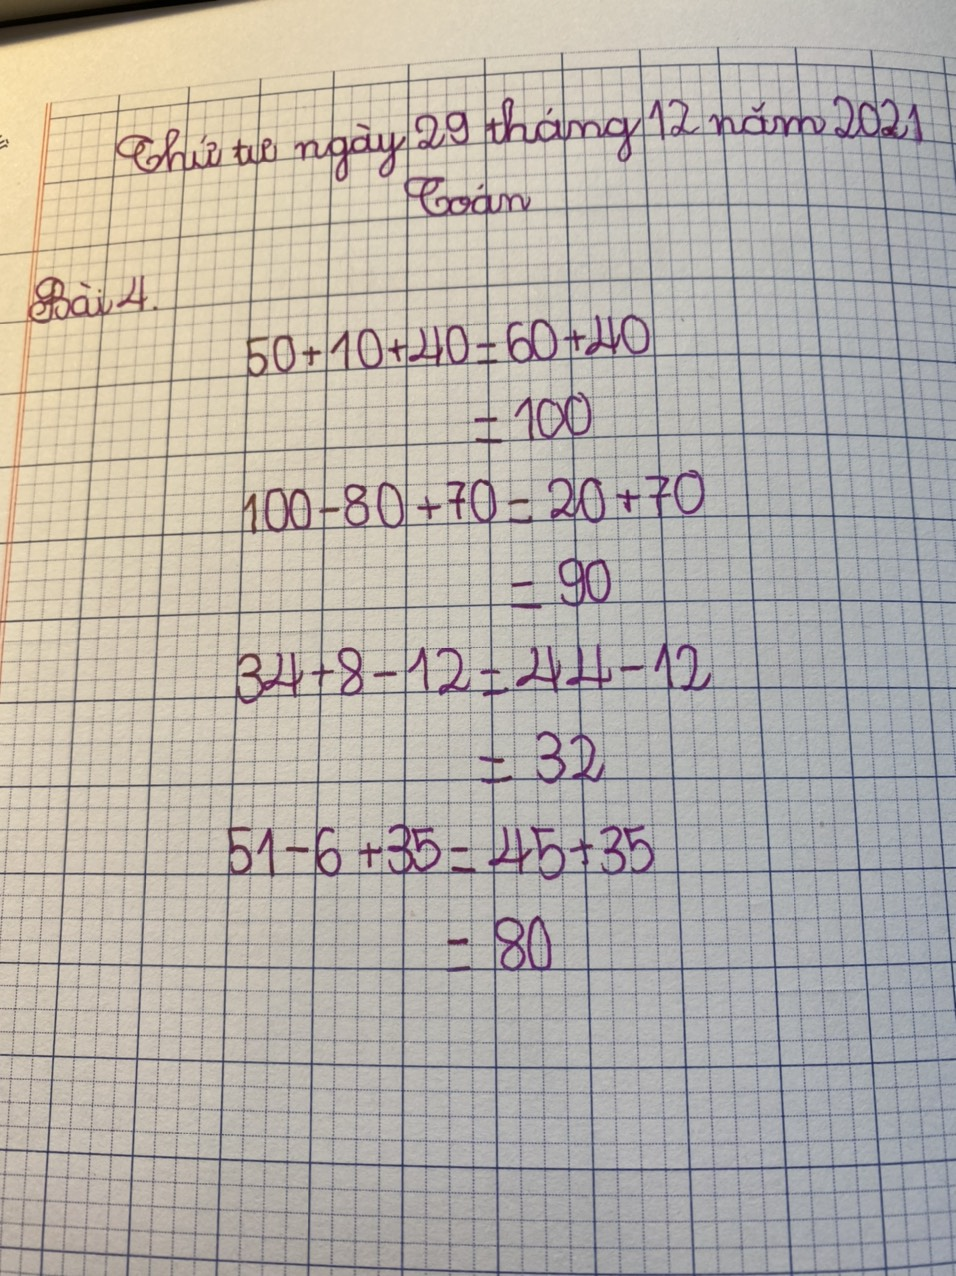 Thứ tư ngày 29 tháng 12 năm 2021
Toán
Bài 4.
50+10+40=60+40
=100
100-80+70=20+70
=90
34+8-12=44-12
=32
51-6+35=45+35
=80